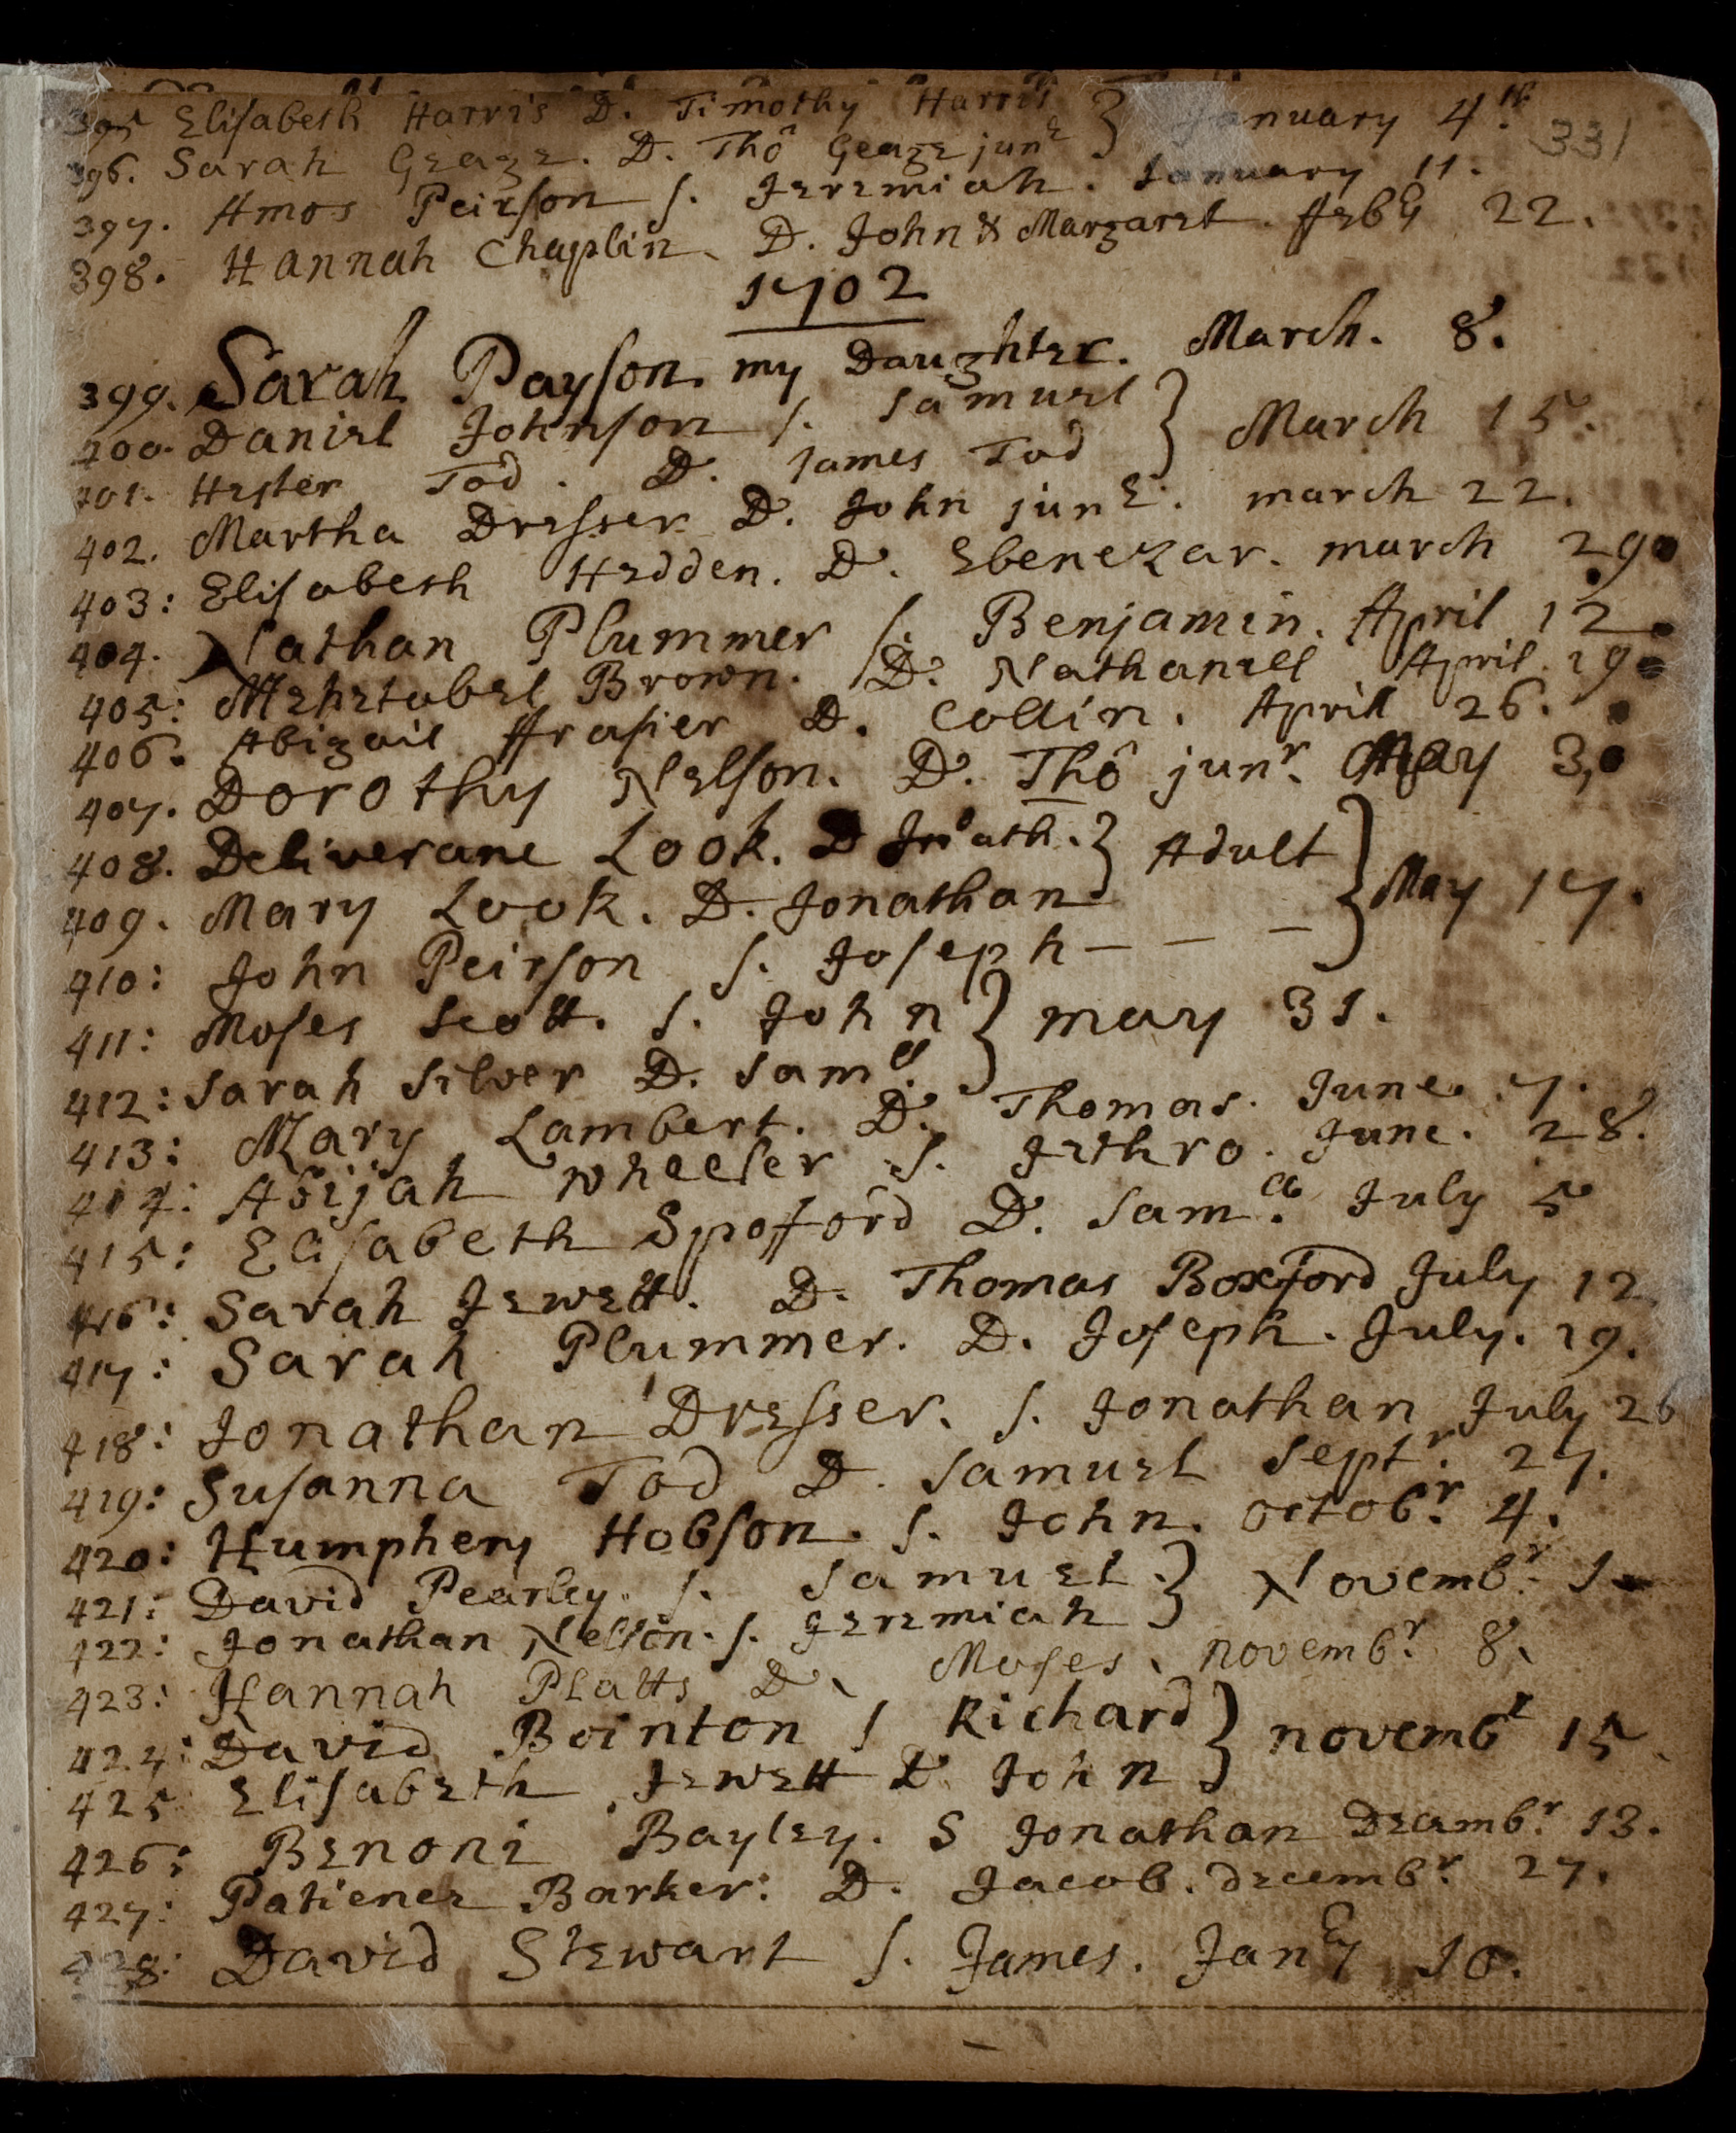 395 Elisabeth Harris D. Timothy Harris } January 4th.
331
396. Sarah Geage. D. Thô Geage junr
397. Amos Peirson s. Jeremiah. January 11.
398. Hannah Chaplin. D. John & Margaret. Feby 22.
1702
399. Sarah Payson. my Daughter. March. 8.
400. Daniel Johnson s. Samuel } March 15.
401. Hester Tod. D. James Tod
402. Martha Dresser D. John junr. march 22.
403: Elisabeth Hedden. D. Ebenezar. march 29
404. Nathan Plummer s. Benjamin. April 12
405: Mehetabel Brown. D. Nathaniell April. 19
406. Abigail Frasier D. Collin. April 26.
407. Dorothy Nelson. D. Thô junr. May 3
408. Deliverane Look. D Jnoath. } Adult } May 17.
409. Mary Look. D. Jonathan
410: John Peirson s. Joseph — — —
411: Moses Scott. s. John } may 31.
412: Sarah Silver D. Samll.
413: Mary Lambert. D. Thomas. June. 7.
414: Abijah Wheeler s. Jethro. June. 28.
415: Elisabeth Spofford D. Samll. July 5
416: Sarah Jewett. D. Thomas Boxford July 12
417: Sarah Plummer. D. Joseph. July. 19.
418: Jonathan Dresser. s. Jonathan July 26
419: Susanna Tod D. Samuel Septr. 27.
420: Humphery Hobson. s. John. Octobr. 4.
421: David Pearley. s. Samuel. } Novembr. 1
422: Jonathan Nelson. s. Jeremiah
423: Hannah Platts D. Moses. novembr. 8.
424: David Bointon s Richard } novembr 15
425 Elisabeth Jewett D. John
426: Benoni Bayley. S Jonathan Decembr. 13.
427: Patience Barker: D. Jacob. Decembr. 27.
428: David Stewart s. James. Jany 10.